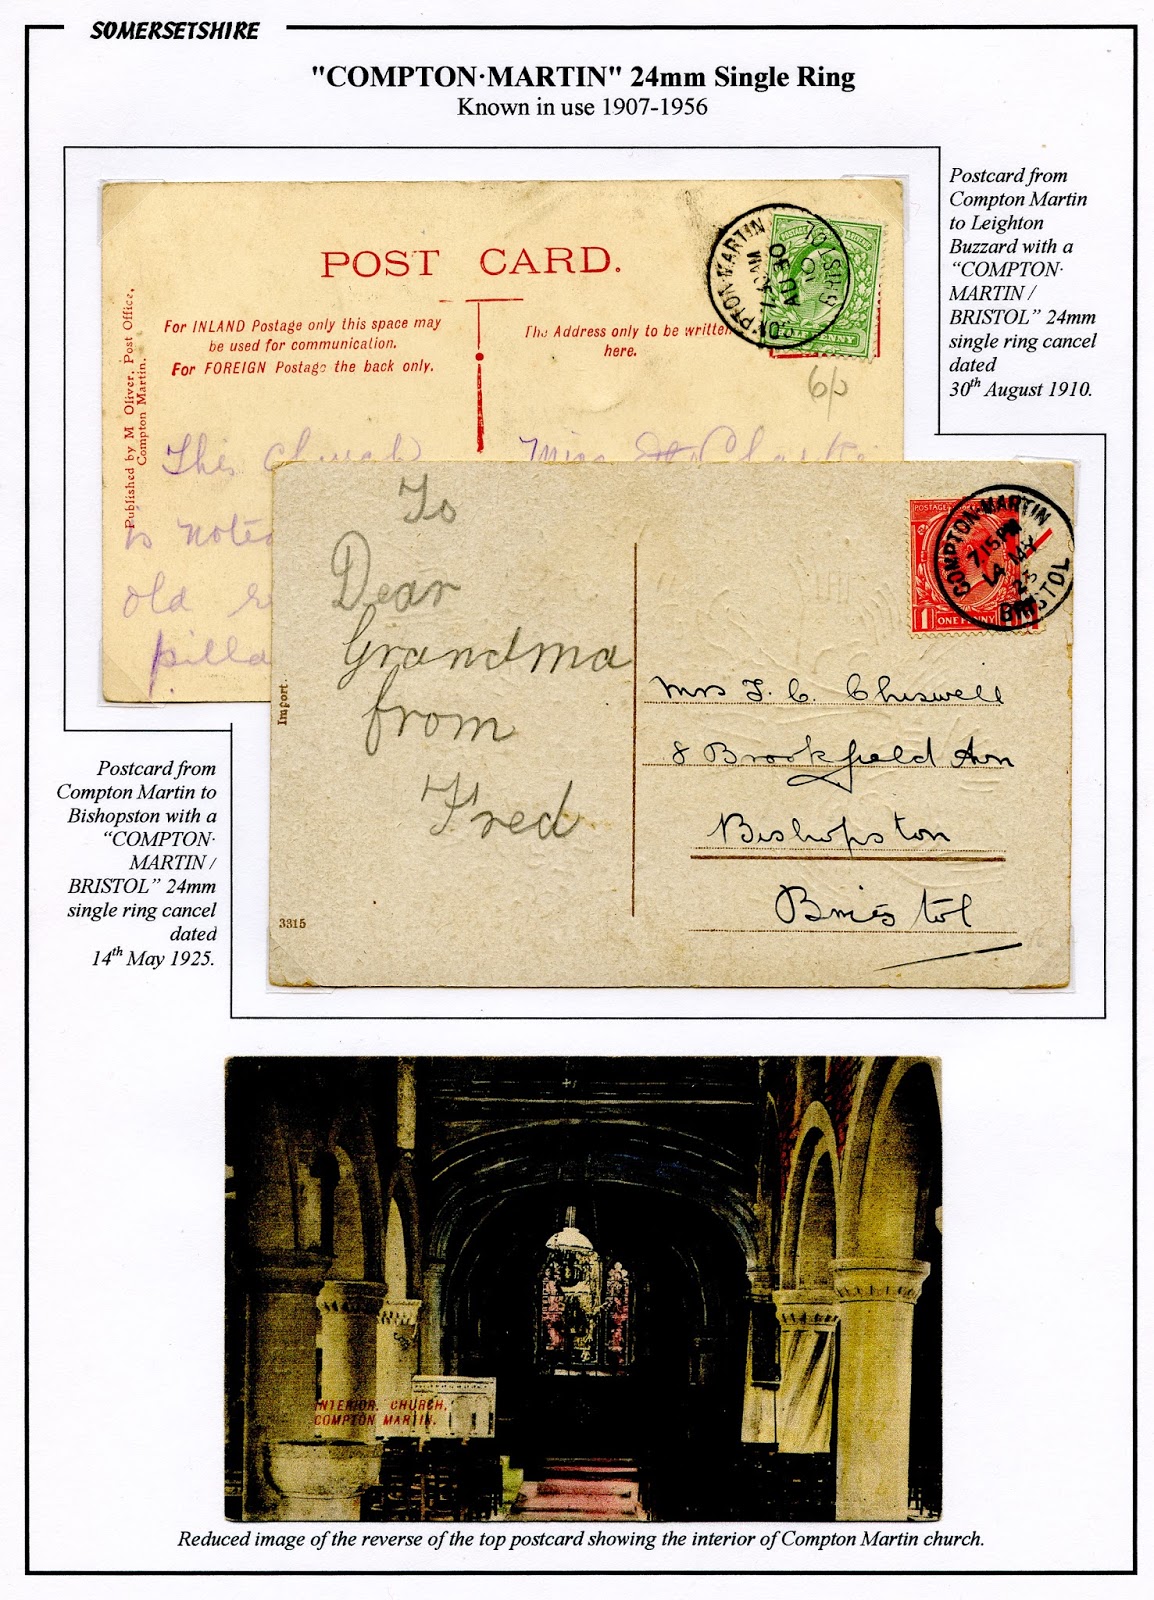 SOMERSETSHIRE
"COMPTON·MARTIN" 24mm Single Ring
Known in use 1907-1956
Postcard from
Compton Martin
to Leighton
Buzzard with a
“COMPTON·
MARTIN /
BRISTOL” 24mm
single ring cancel
dated
30th August 1910.
POST CARD.
For INLAND Postage only this space may
be used for communication.
For FOREIGN Postage the back only.
The Address only to be written
here.
Published by M Oliver, Post Office,
Compton Martin.
COMPTON·MARTIN
AU 30
10
BRISTOL
PENNY
6/
This Church
is noted
old
pilla
Miss Clarke
To
Dear
Grandma
from
Fred
Import.
3315
COMPTON·MARTIN
7 15 PM
14 MY
BRISTOL
POSTAGE
1 ONE PENNY
Mrs F. C. Chiswell
8 Brookfield Avn
Bishopston
Bristol
Postcard from
Compton Martin to
Bishopston with a
“COMPTON·
MARTIN /
BRISTOL” 24mm
single ring cancel
dated
14th May 1925.
INTERIOR, CHURCH,
COMPTON MARTIN.
Reduced image of the reverse of the top postcard showing the interior of Compton Martin church.